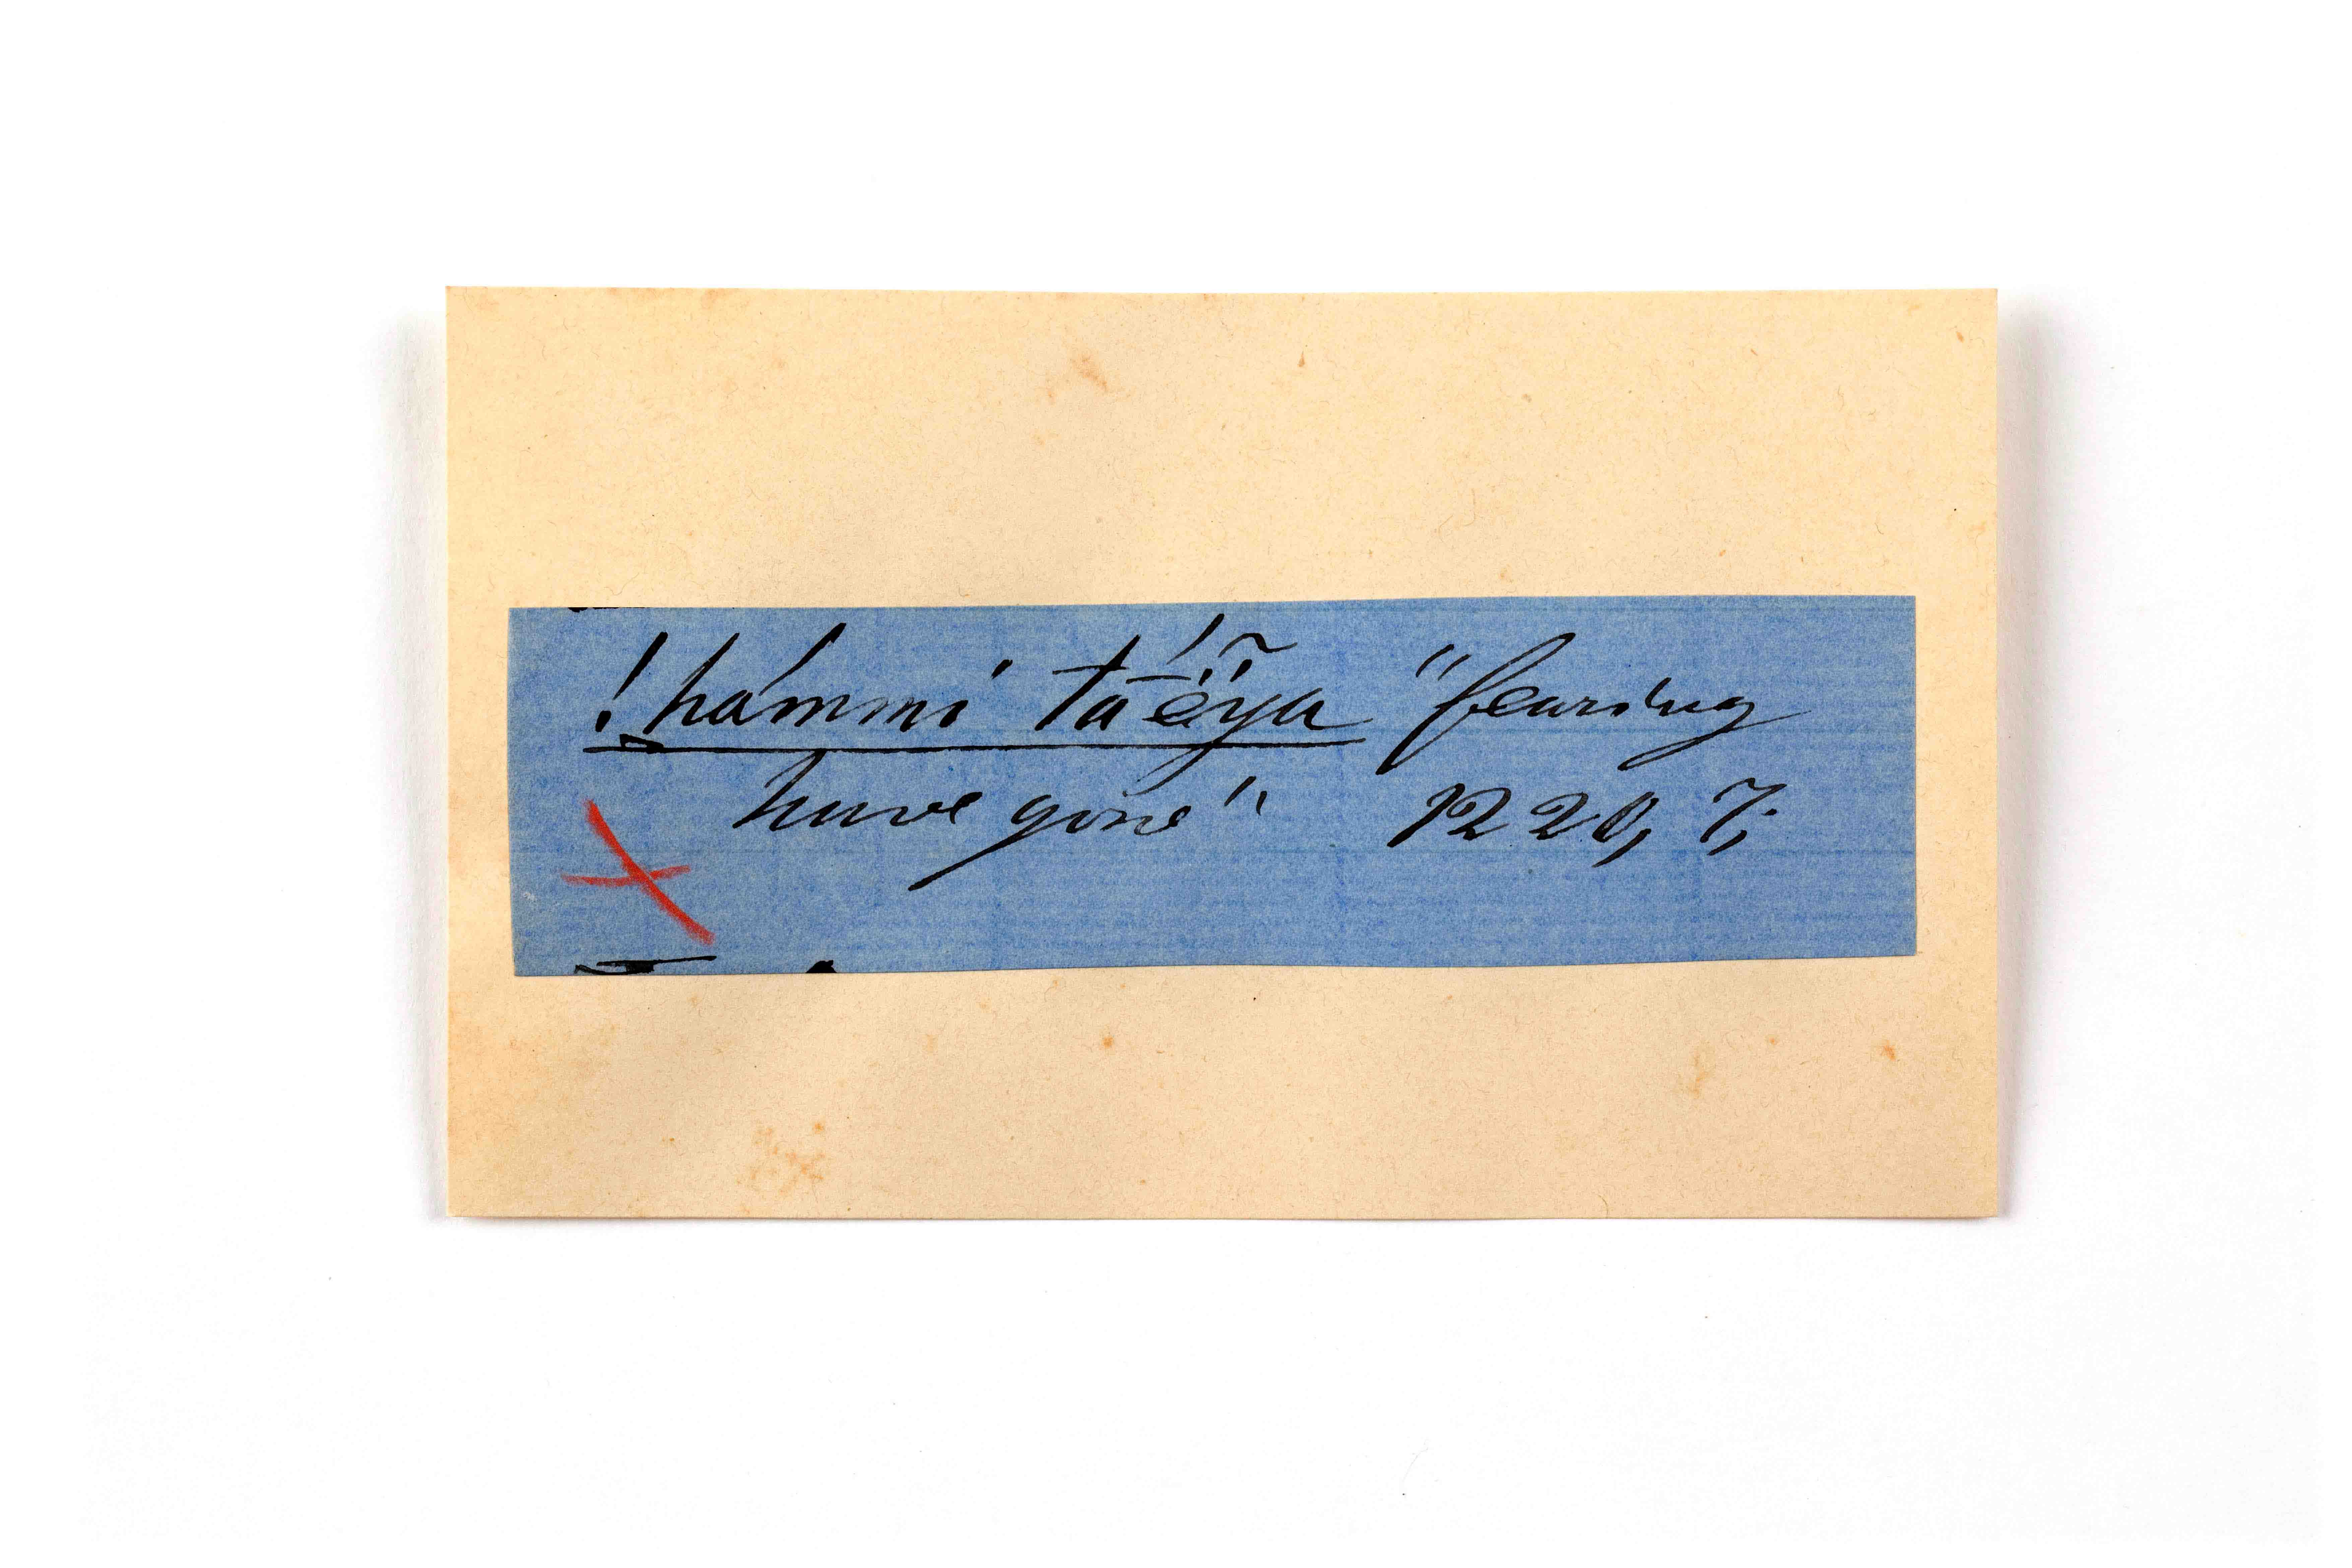 !hámmi tá é̃ya "fearing
have gone" 1220, 7;